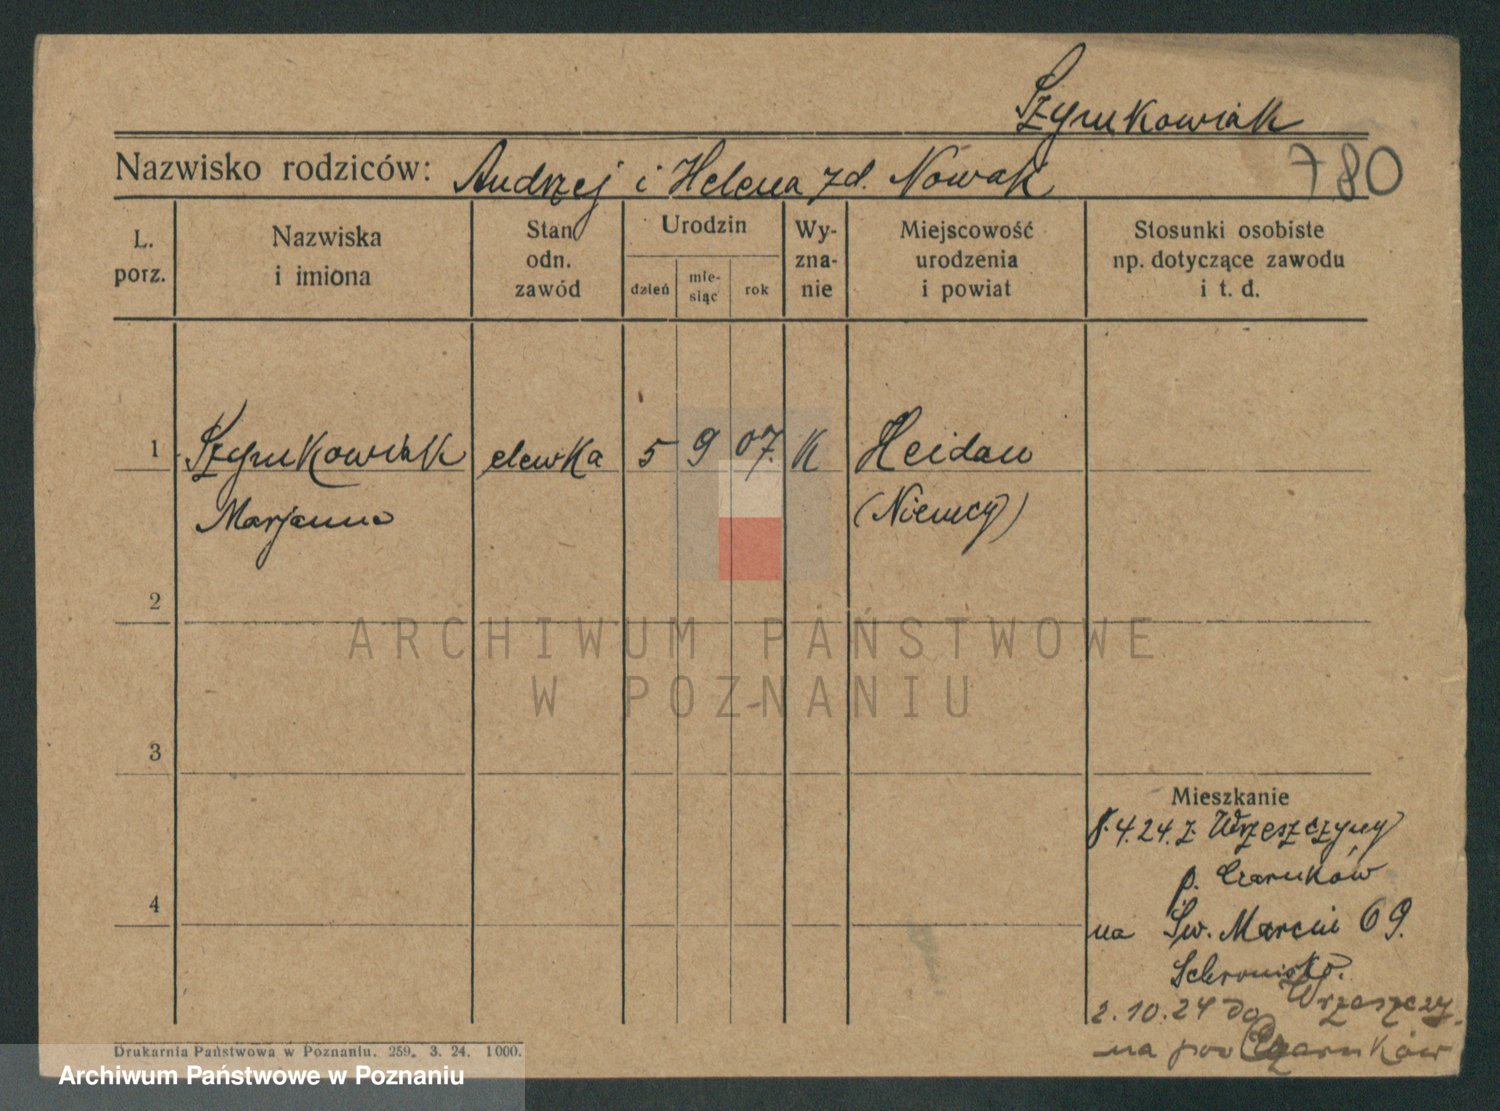 Szymkowiak
Nazwisko rodziców: Andrzej i Helena zd. Nowak 780
L. porz. Nazwiska i imiona Stan odn. zawód Urodzin dzień mie-siąc rok Wy-zna-nie Miejscowość urodzenia i powiat Stosunki osobiste np. dotyczące zawodu i t. d.
1 Szymkowiak elewka 5 9 07. K Heidau
Marjanna (Niemcy)
2
3
4
Mieszkanie
8.4.24. z. Wrzeszczyny
p. Czarnków
na Św. Marcin 69.
Schronisko.
2.10.24 do Wrzeszczy.
na pow Czarnków
Drukarnia Państwowa w Poznaniu. 259. 3. 24. 1000.
ARCHIWUM PAŃSTWOWE
W POZNANIU
Archiwum Państwowe w Poznaniu